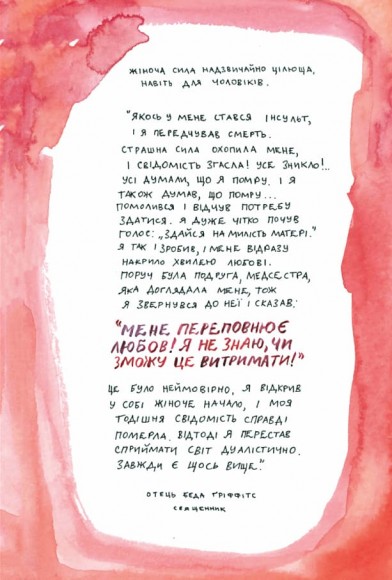 ЖІНОЧА СИЛА НАДЗВИЧАЙНО ЦІЛЮЩА,
НАВІТЬ ДЛЯ ЧОЛОВІКІВ.
"ЯКОСЬ У МЕНЕ СТАВСЯ ІНСУЛЬТ,
І Я ПЕРЕДЧУВАВ СМЕРТЬ.
СТРАШНА СИЛА ОХОПИЛА МЕНЕ,
І СВІДОМІСТЬ ЗГАСЛА! УСЕ ЗНИКЛО!..
УСІ ДУМАЛИ, ЩО Я ПОМРУ. І Я
ТАКОЖ ДУМАВ, ЩО ПОМРУ...
ПОМОЛИВСЯ І ВІДЧУВ ПОТРЕБУ
ЗДАТИСЯ. Я ДУЖЕ ЧІТКО ПОЧУВ
ГОЛОС: „ЗДАЙСЯ НА МИЛІСТЬ МАТЕРІ."
Я ТАК І ЗРОБИВ, І МЕНЕ ВІДРАЗУ
НАКРИЛО ХВИЛЕЮ ЛЮБОВІ.
ПОРУЧ БУЛА ПОДРУГА, МЕДСЕСТРА,
ЯКА ДОГЛЯДАЛА МЕНЕ, ТОЖ
Я ЗВЕРНУВСЯ ДО НЕЇ І СКАЗАВ:
"МЕНЕ ПЕРЕПОВНЮЄ
ЛЮБОВ! Я НЕ ЗНАЮ, ЧИ
ЗМОЖУ ЦЕ ВИТРИМАТИ!"
ЦЕ БУЛО НЕЙМОВІРНО. Я ВІДКРИВ
У СОБІ ЖІНОЧЕ НАЧАЛО, І МОЯ
ТОДІШНЯ СВІДОМІСТЬ СПРАВДІ
ПОМЕРЛА. ВІДТОДІ Я ПЕРЕСТАВ
СПРИЙМАТИ СВІТ ДУАЛІСТИЧНО.
ЗАВЖДИ Є ЩОСЬ ВИЩЕ."
ОТЕЦЬ БЕДА ҐРІФФІТС
СВЯЩЕННИК